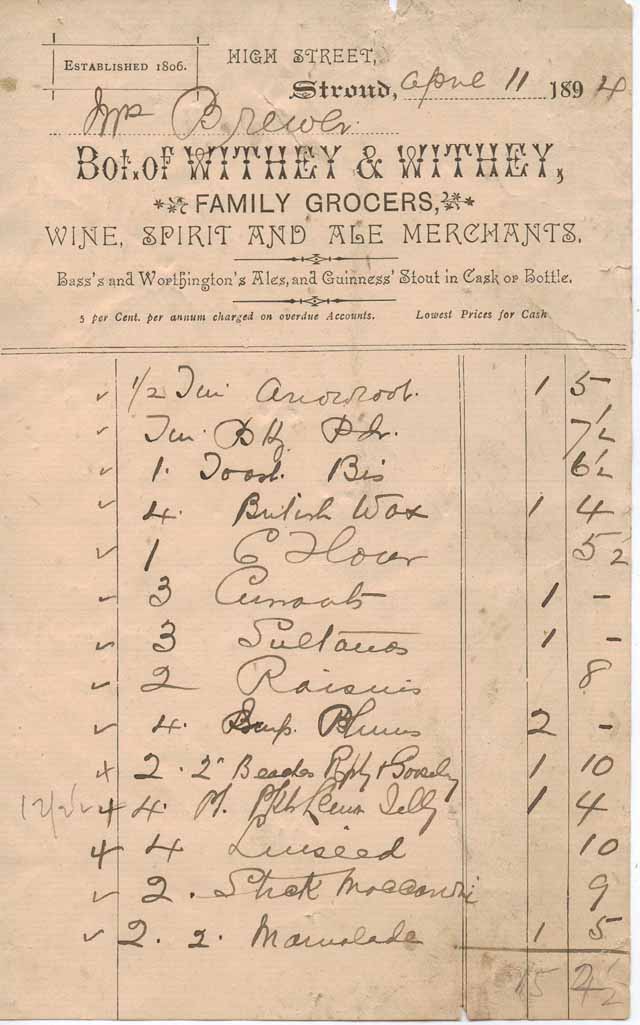 ESTABLISHED 1806.
HIGH STREET,
Stroud, April 11 1894
Mrs Brewer
Bot. of WITHEY & WITHEY,
FAMILY GROCERS,
WINE, SPIRIT AND ALE MERCHANTS.
Bass's and Worthington's Ales, and Guinness' Stout in Cask or Bottle.
5 per Cent. per annum charged on overdue Accounts. Lowest Prices for Cash
1/2 Tin Arrowroot. 1 5
Tin Bkg Pdr. 7 1/2
1. Toast Bis 6 1/2
4. British Wax 1 4
1 C Flour 5 1/2
3 Currants 1 -
3 Sultanas 1 -
2 Raisins 8
4. Plums 2 -
2. 2 Beades Rpby & Goosby 1 10
4. Jelly 1 4
4 Linseed 10
2. Stick Maccaroni 9
2. 2. Marmalade 1 5
15 2 1/2